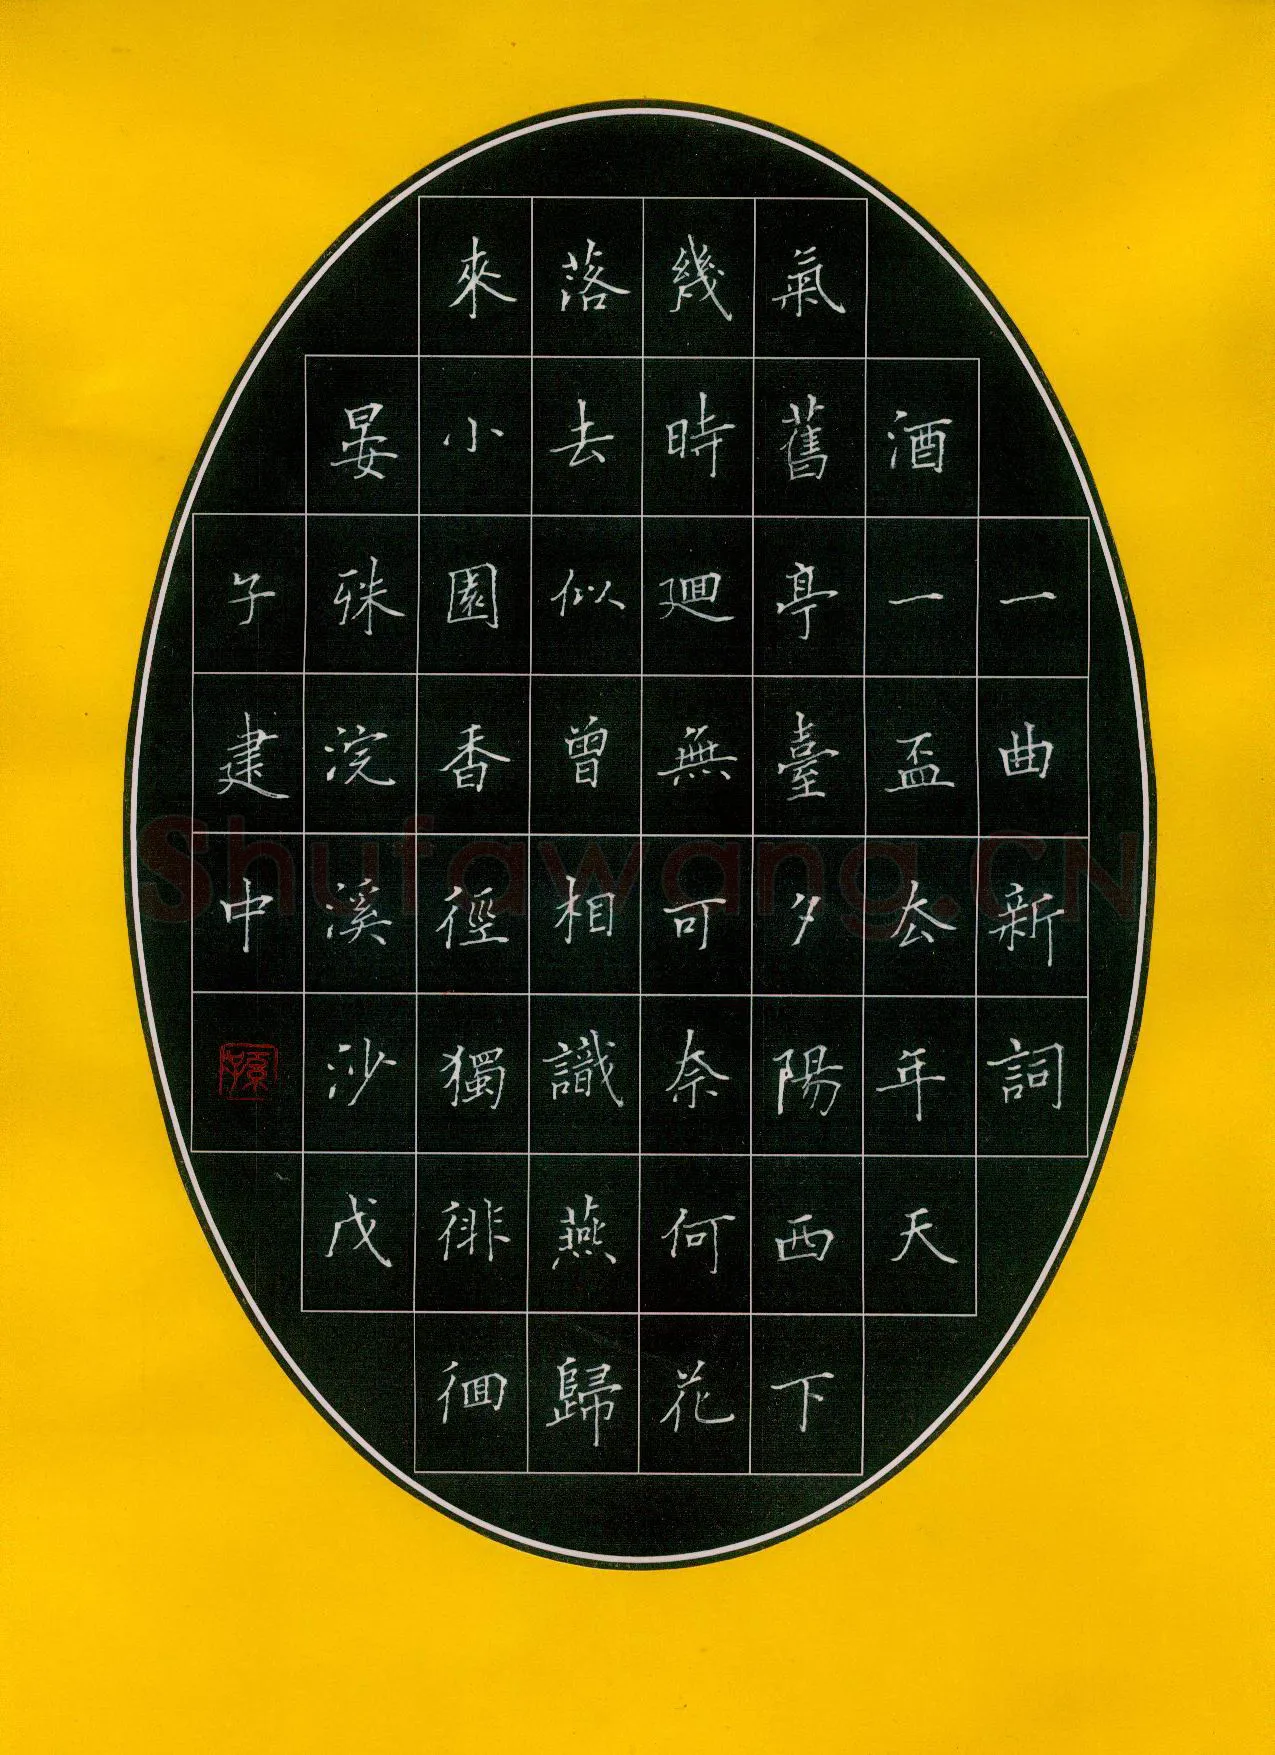 一曲新詞
酒一盃厺年天
氣舊亭臺夕陽西下
幾時廻無可奈何花
落去似曾相識燕歸
來小園香徑獨徘徊
晏殊浣溪沙戊
子建中
孫
Shufawang.CN